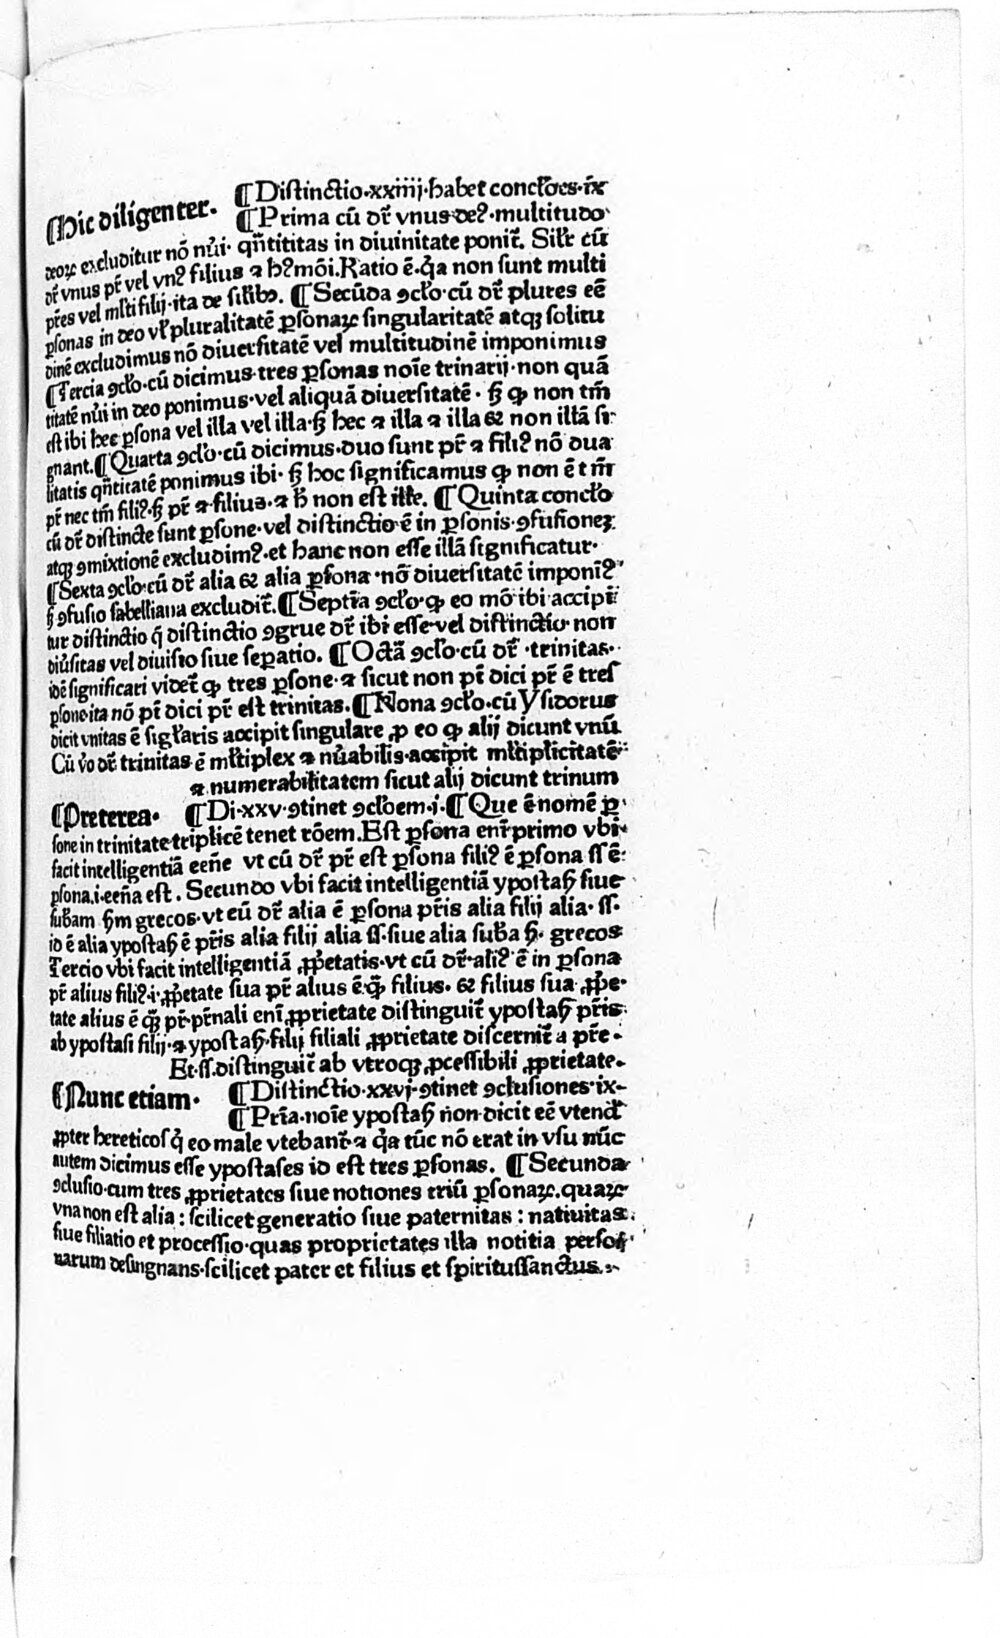 ¶Distinctio·xxiiij·habet conclōes·ix
¶Hic diligenter. ¶Prima cū dr̄ vnus·deꝰ·multitudo
deoꝝ excluditur nō nūi· qn̄titas in diuinitate ponit᷑. Silr̄ cū
dr̄ vnus pr̄ vel vnꝰ filius ⁊ hꝰmōi. Ratio ē·q̇a non sunt multi
pr̄es vel ml̄ti filij·ita de silibꝫ. ¶Secūda ↄcl̄o·cū dr̄ plures eē
ꝑsonas in deo vl̄ pluralitatē ꝑsonaꝝ singularitatē atqꝫ solitu
dinē excludimus nō diuersitatē vel multitudinē imponimus
¶Tercia ↄcl̄o·cū dicimus·tres ꝑsonas noīe trinarij·non quā
titatē nūi in deo ponimus·vel aliquā diuersitatē· sꝫ ꝙ non tm̄
est ibi hec ꝑsona vel illa vel illa·sꝫ hec ⁊ illa ⁊ illa & non illā si
gnant. ¶Quarta ↄcl̄o·cū dicimus·duo sunt pr̄ ⁊ filiꝰ nō dua
litatis qn̄titatē ponimus ibi· sꝫ hoc significamus ꝙ non ē tm̄
pr̄ nec tm̄ filiꝰ·sꝫ pr̄ ⁊·filius·⁊ h̄ non est ille. ¶Quinta concl̄o
cū dr̄ distincte sunt ꝑsone·vel distinctio·ē in ꝑsonis·ↄfusioneꝫ
atqꝫ ↄmixtionē excludimꝰ·et hanc non esse illā significatur·
¶Sexta ↄcl̄o·cū dr̄ alia & alia ꝑsona·nō diuersitatē imponiꝰ
sꝫ ↄfusio sabelliana excludit᷑. ¶Septīa ↄcl̄o·ꝙ eo mō ibi accipi
tur distinctio q̇ distinctio ↄgrue dr̄ ibi esse·vel distinctio·non
diūsitas vel diuisio siue seꝑatio. ¶Octā ↄcl̄o·cū dr̄ ·trinitas·
idē significari videt᷑ ꝙ tres ꝑsone·⁊ sicut non pt̄ dici pr̄ ē tres
ꝑsone·ita nō pt̄ dici pr̄ est trinitas. ¶Nona ↄcl̄o·cū Ysidorus
dicit vnitas ē sigl̄aris accipit singulare ꝓ eo ꝙ alij dicunt vnū
Cū v̇o dr̄ trinitas ē ml̄tiplex ⁊ nūabilis·accipit ml̄tiplicitatē
⁊ numerabilitatem sicut alij dicunt trinum
¶Preterea· ¶Di·xxv·ↄtinet ↄcl̄oem·i·¶Que ē nomē ꝑ
sone in trinitate·triplicē tenet rōem. Est ꝑsona eni᷑ primo vbi·
facit intelligentiā eēne vt cū dr̄ pr̄ est ꝑsona filiꝰ ē ꝑsona ss ē·
ꝑsona.i·eēna est. Secundo vbi facit intelligentiā ypostasꝭ siue
sub̄am sꝫm grecos·vt cū dr̄ alia ē ꝑsona pr̄is alia filij alia·ss·
id ē alia ypostasꝭ ē pr̄is alia filij alia ss·siue alia sub̄a sꝫ· grecos
Tercio vbi facit intelligentiā ꝓpetatis·vt cū dr̄·aliꝰ ē in ꝑsona
pr̄ alius filiꝰ·i·ꝓpetate sua pr̄ alius ē·qꝫ filius· & filius sua ꝓpe·
tate alius ē qꝫ pr̄·pr̄nali eni᷑ ꝓprietate distinguit᷑ ypostasꝭ pr̄is·
ab ypostasi filij·⁊ ypostasꝭ·filij filiali ꝓprietate discernit᷑ a pr̄e·
Et·ss·distinguit᷑ ab vtroqꝫ ꝓcessibili ꝓprietate·
¶Nunc etiam· ¶Distinctio·xxvj·ↄtinet ↄclusiones·ix·
¶Prīa·noīe ypostasꝭ non·dicit eē vtend̄
ꝓpter hereticos q̇ eo male vtebant᷑·⁊ q̇a tūc nō erat in vsu nūc
autem dicimus esse ypostases id est tres ꝑsonas. ¶Secunda
ↄclusio·cum tres ꝓprietates siue notiones triū ꝑsonaꝝ. quaꝝ
vna non est alia : scilicet generatio siue paternitas : natiuitas
siue filiatio et processio·quas proprietates illa notitia perso
narum desingnans·scilicet pater et filius et spiritussanctus.